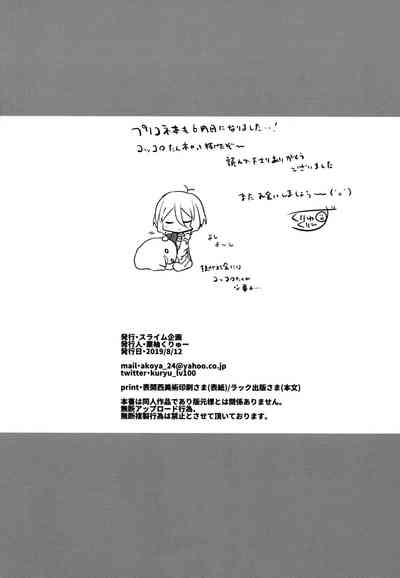 プリコネ本も6冊目になりました…!
コッコロたん本やっと描けたぞ〜
読んで下さりありがとう
ございました
また お会いしましょう〜
くりゅ
よし
よ〜し
コッコロたんが
必要…
発行・スライム企画
発行人・栗柚くりゅー
発行日・2019/8/12
mail・akoya_24@yahoo.co.jp
twitter・kuryu_lv100
print・表関西美術印刷さま(表紙)/ラック出版さま(本文)
本書は同人作品であり版元様とは関係ありません。
無断アップロード行為、
無断複製行為は禁止とさせて頂いております。